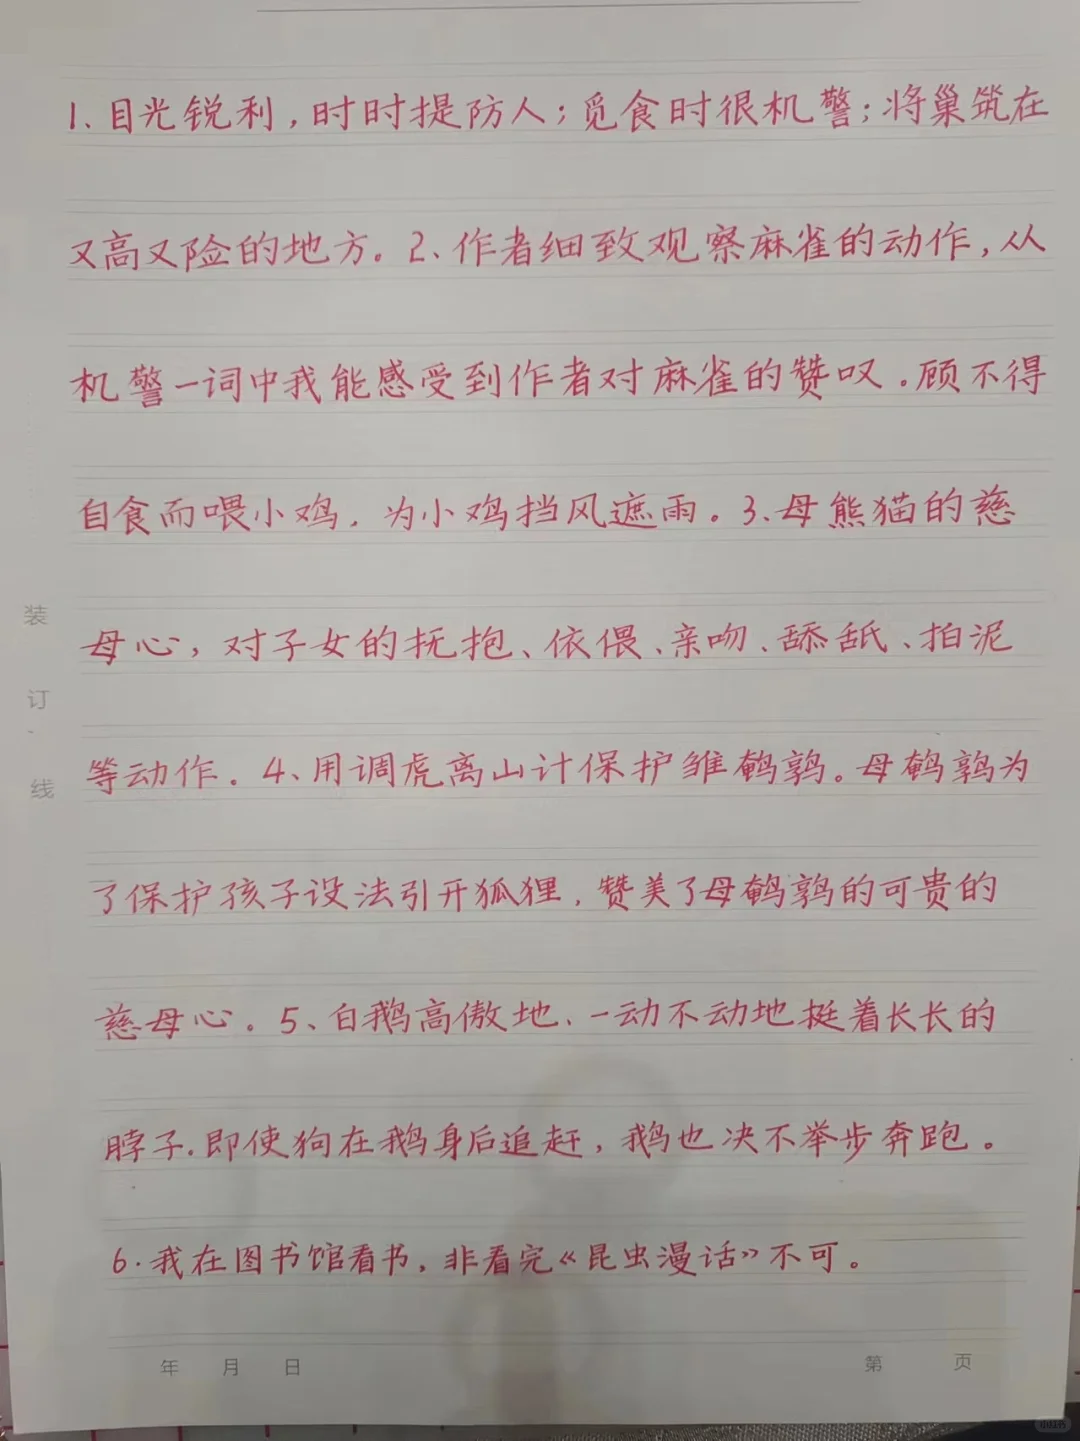 1、目光锐利，时时提防人；觅食时很机警；将巢筑在
又高又险的地方。2、作者细致观察麻雀的动作，从
机警一词中我能感受到作者对麻雀的赞叹。顾不得
自食而喂小鸡，为小鸡挡风遮雨。3、母熊猫的慈
母心，对子女的抚抱、依偎、亲吻、舔舐、拍泥
等动作。4、用调虎离山计保护雏鹌鹑。母鹌鹑为
了保护孩子设法引开狐狸，赞美了母鹌鹑的可贵的
慈母心。5、白鹅高傲地、一动不动地挺着长长的
脖子.即使狗在鹅身后追赶，鹅也决不举步奔跑。
6.我在图书馆看书，非看完《昆虫漫话》不可。
装
订
线
年 月 日
第 页